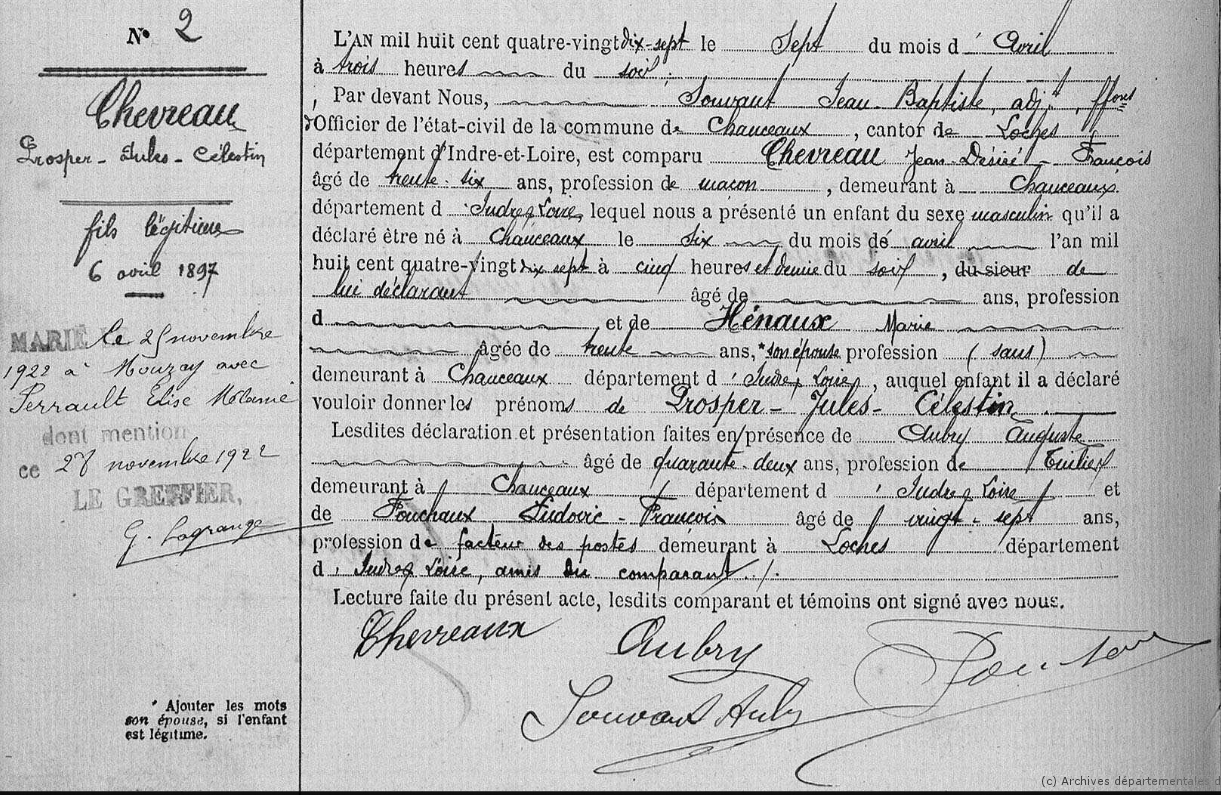 N° 2
Chevreau
Prosper - Jules - Célestin
fils légitime
6 avril 1897
MARIÉ le 25 novembre
1922 à Mouzay avec
Perrault Elise
dont mention
ce 27 novembre 1922
LE GREFFIER,
G. Lagrange
* Ajouter les mots
son épouse, si l'enfant
est légitime.
L'AN mil huit cent quatre-vingt dix-sept le Sept du mois d' Avril
à trois heures du soir
Par devant Nous, Souvant Jean-Baptiste, adjt, ffons
d'Officier de l'état-civil de la commune de Chanceaux, canton de Loches,
département d'Indre-et-Loire, est comparu Chevreau Jean-Désiré-François
âgé de trente-six ans, profession de maçon, demeurant à Chanceaux
département d'Indre & Loire, lequel nous a présenté un enfant du sexe masculin qu'il a
déclaré être né à Chanceaux le six du mois de avril l'an mil
huit cent quatre-vingt dix sept à cinq heures et demie du soir, du sieur de
lui déclarant âgé de ans, profession
d et de Hénaux Marie
âgée de trente ans, * son épouse profession (sans)
demeurant à Chanceaux département d'Indre & Loire, auquel enfant il a déclaré
vouloir donner les prénoms de Prosper - Jules - Célestin
Lesdites déclaration et présentation faites en présence de Aubry Auguste
âgé de quarante-deux ans, profession de Tuilier
demeurant à Chanceaux département d'Indre & Loire et
de Fouchaux Ludovic-François âgé de vingt-sept ans,
profession de facteur des postes demeurant à Loches département
d'Indre & Loire, amis du comparant ./.
Lecture faite du présent acte, lesdits comparant et témoins ont signé avec nous.
Chevreaux Aubry
Souvant
(c) Archives départementales d